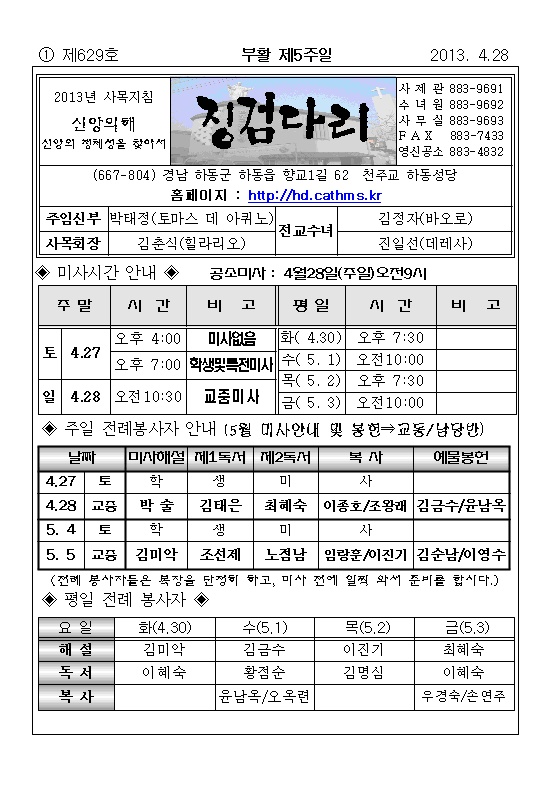 ① 제629호 부활 제5주일 2013. 4.28
2013년 사목지침
신앙의해
신앙의 정체성을 찾아서
징검다리
사 제 관 883-9691
수 녀 원 883-9692
사 무 실 883-9693
F A X 883-7433
영신공소 883-4832
(667-804) 경남 하동군 하동읍 향교1길 62 천주교 하동성당
홈페이지 : http://hd.cathms.kr
주임신부 박태정(토마스 데 아퀴노) 전교수녀 김정자(바오로)
사목회장 김춘식(힐라리오) 진일선(데레사)
◈ 미사시간 안내 ◈ 공소미사 : 4월28일(주일)오전9시
주 말 시 간 비 고 평 일 시 간 비 고
토 4.27 오후 4:00 미사없음 화( 4.30) 오후 7:30
오후 7:00 학생및특전미사 수( 5. 1) 오전10:00
일 4.28 오전10:30 교중미사 목( 5. 2) 오후 7:30
금( 5. 3) 오전10:00
◈ 주일 전례봉사자 안내 (5월 미사안내 및 봉헌⇒교동/남당반)
날짜 미사해설 제1독서 제2독서 복 사 예물봉헌
4.27 토 학 생 미 사
4.28 교중 박 술 김태은 최혜숙 이종호/조왕래 김금수/윤남옥
5. 4 토 학 생 미 사
5. 5 교중 김미악 조선제 노점남 임랑훈/이진기 김순남/이영수
(전례 봉사자들은 복장을 단정히 하고, 미사 전에 일찍 와서 준비를 합시다.)
◈ 평일 전례 봉사자 ◈
요 일 화(4.30) 수(5.1) 목(5.2) 금(5.3)
해 설 김미악 김금수 이진기 최혜숙
독 서 이혜숙 황점순 김명심 이혜숙
복 사 윤남옥/오옥련 우경숙/손연주